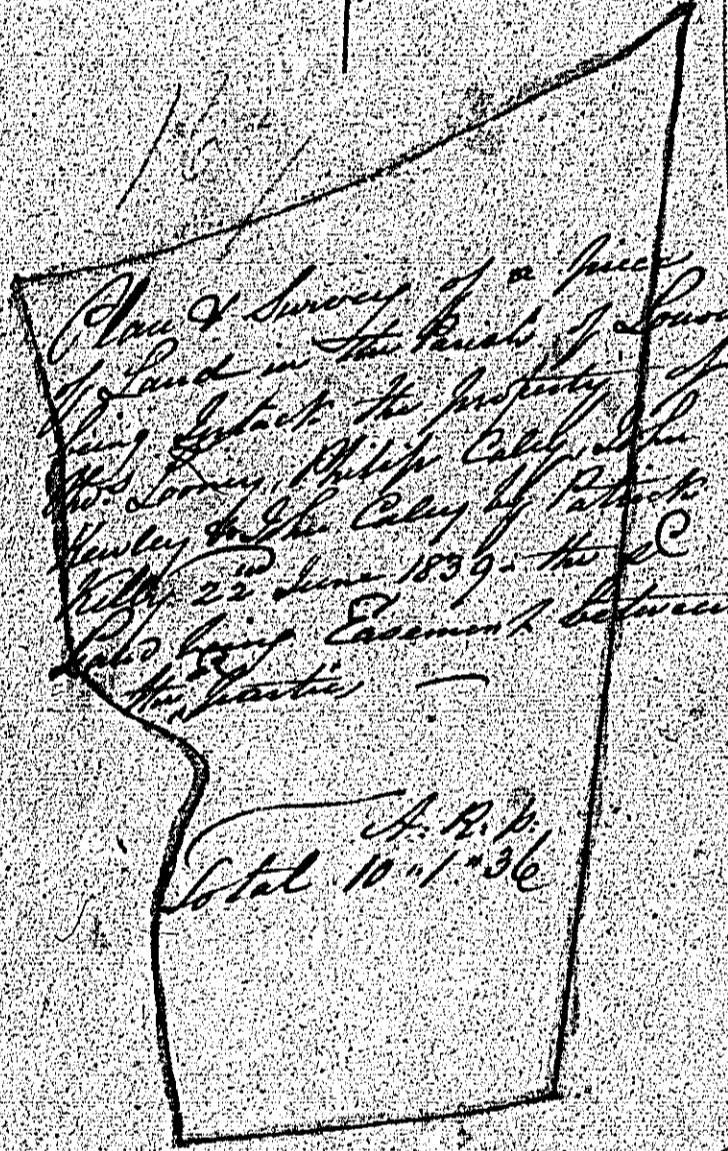 Plan & Survey of a piece
of Land in the Parish of Lonan
being Intack the property of
Thos Looney, Philip Caley, John
Kewley & John Caley by Patrick
Kelly 22nd June 1839 the sd
Land being Easement between
the parties
A. R. P.
Total 10 " 1 " 36